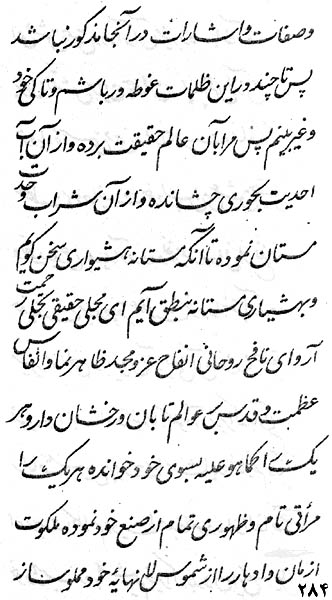 وصفات و اشارات در آنجا مذکور نباشد
پس تا چند در این ظلمات غوطه ور باشم و تا کی خود
و غیر بینم پس مرا بآن عالم حقیقت برده و از آن آب
احدیت بحوری چشانده و از آن شراب وحدت
مستان نموده تا آنکه مستانه هشیواری سخن گویم
و بهشیاری مستانه بنطق آیم ای مجلی حقیقی تجلی رحمت
آر و ای نافخ روحانی انفاح عز و مجد ظاهر نما و انفاس
عظمت و قدس بر عوالم تابان و رخشان دار و هر
یک را کما هو علیه بسوی خود خوانده هر یک را
مرآتی تام و ظهوری تمام از صنع خود نموده ملکوت
ازمان و ادهار را از شموس لانهایهٔ خود مملو ساز
۲۸۴